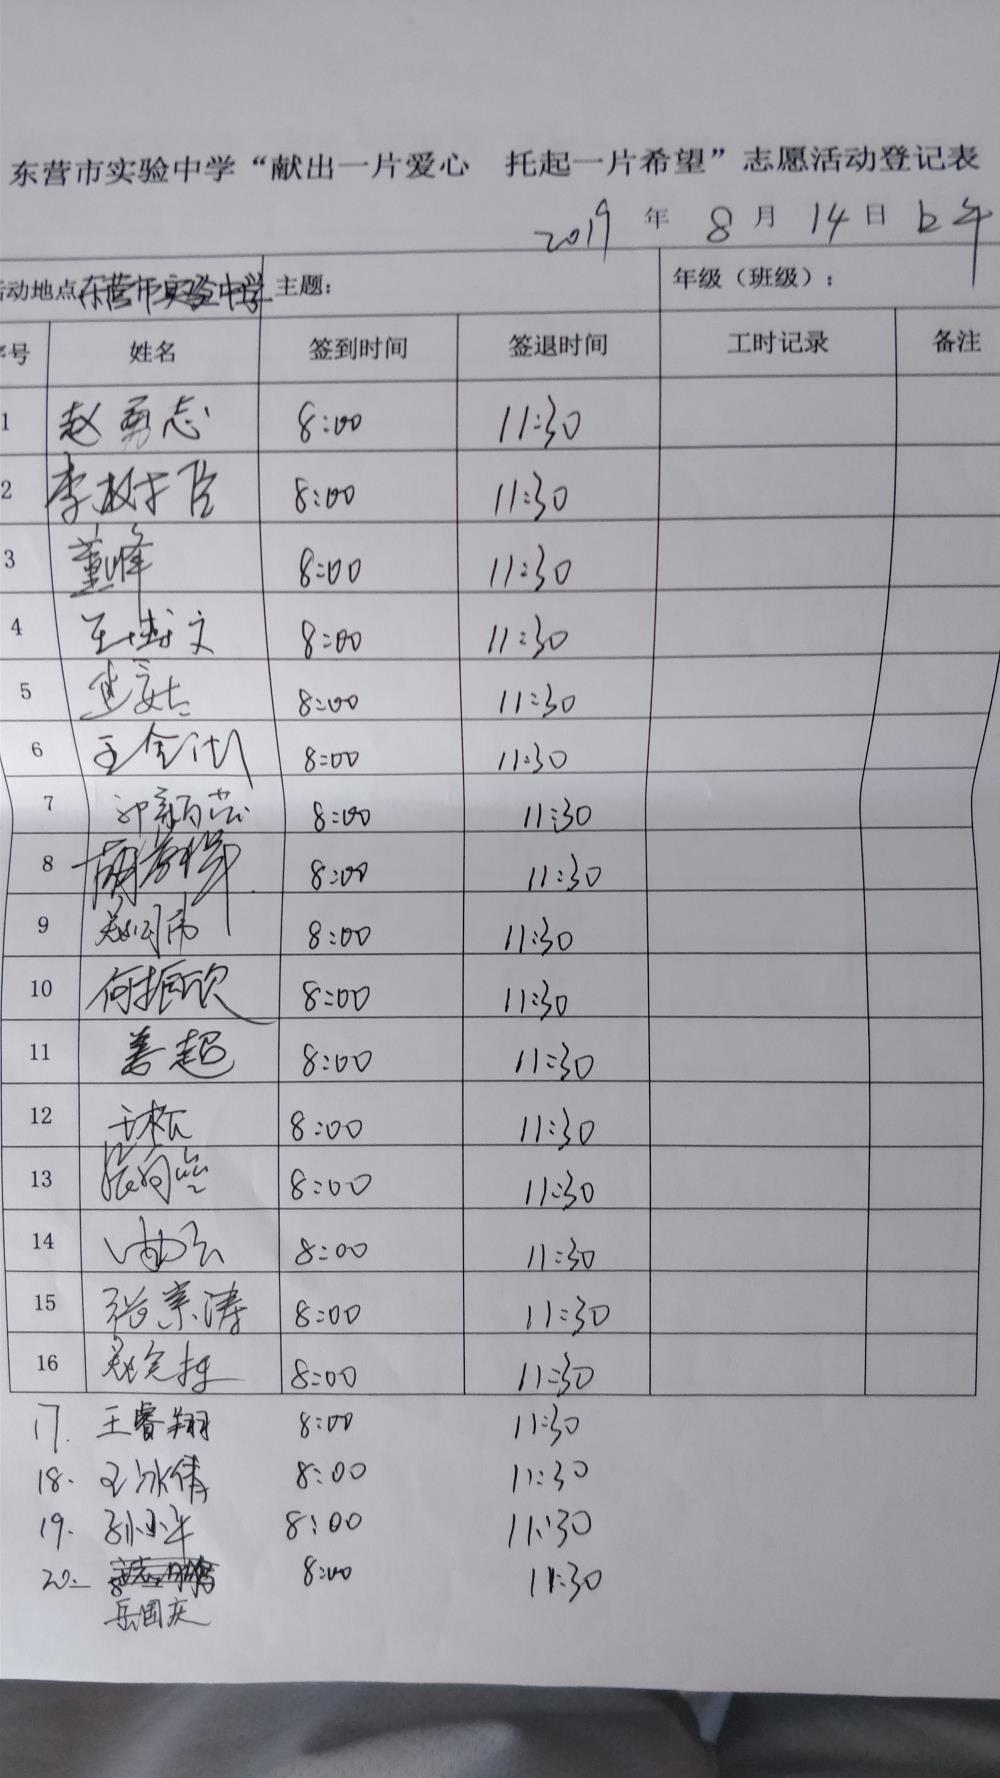 东营市实验中学“献出一片爱心 托起一片希望”志愿活动登记表
2019 年 8 月 14 日 上午
活动地点 东营市实验中学 主题： 年级（班级）：
序号 姓名 签到时间 签退时间 工时记录 备注
1 赵勇志 8:00 11:30
2 李树臣 8:00 11:30
3 董峰 8:00 11:30
4 王博文 8:00 11:30
5 8:00 11:30
6 王金 8:00 11:30
7 8:00 11:30
8 8:00 11:30
9 8:00 11:30
10 何振欣 8:00 11:30
11 姜超 8:00 11:30
12 8:00 11:30
13 8:00 11:30
14 8:00 11:30
15 张宗涛 8:00 11:30
16 8:00 11:30
17. 王睿翔 8:00 11:30
18. 王冰倩 8:00 11:30
19. 孙小平 8:00 11:30
20. 8:00 11:30
岳国庆